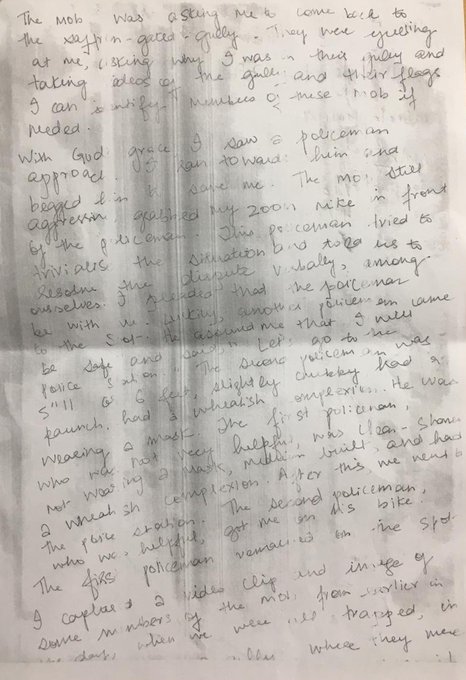 The mob was asking me to come back to
the saffron-gated-gully. They were yelling
at me, asking why I was in their gulley and
taking videos of the gulley and their flags
I can identify members of these mob if
needed.
With God grace I saw a policeman
approach. I ran towards him and
begged him to save me. The mob still
aggressive grabbed my zoom mike in front
of the policeman. This policeman tried to
trivialise the situation and told us to
resolve the dispute verbally, among
ourselves. I pleaded that the policeman
be with me. Luckily, another policeman came
to the spot. He assured me that I will
be safe and said, Let's go to the
police station. The second policeman was
5"11 to 6 feet, slightly chubby had a
paunch, had a wheatish complexion. He was
wearing a mask. The first policeman,
who was not very helpful, was clean-shaven
not wearing a mask, medium built, and had
a wheatish complexion. After this we went to
the police station. The second policeman,
who was helpful, got me on his bike.
The first policeman remained on the spot
I captured a video clip and image of
some members of the mob, from earlier in
the day, when we were all trapped, in
where they were